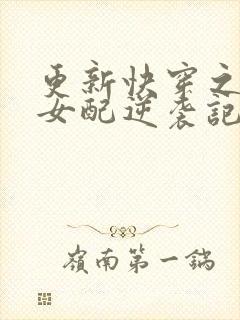 更新快穿之
女配逆袭記
嶺南第一鍋